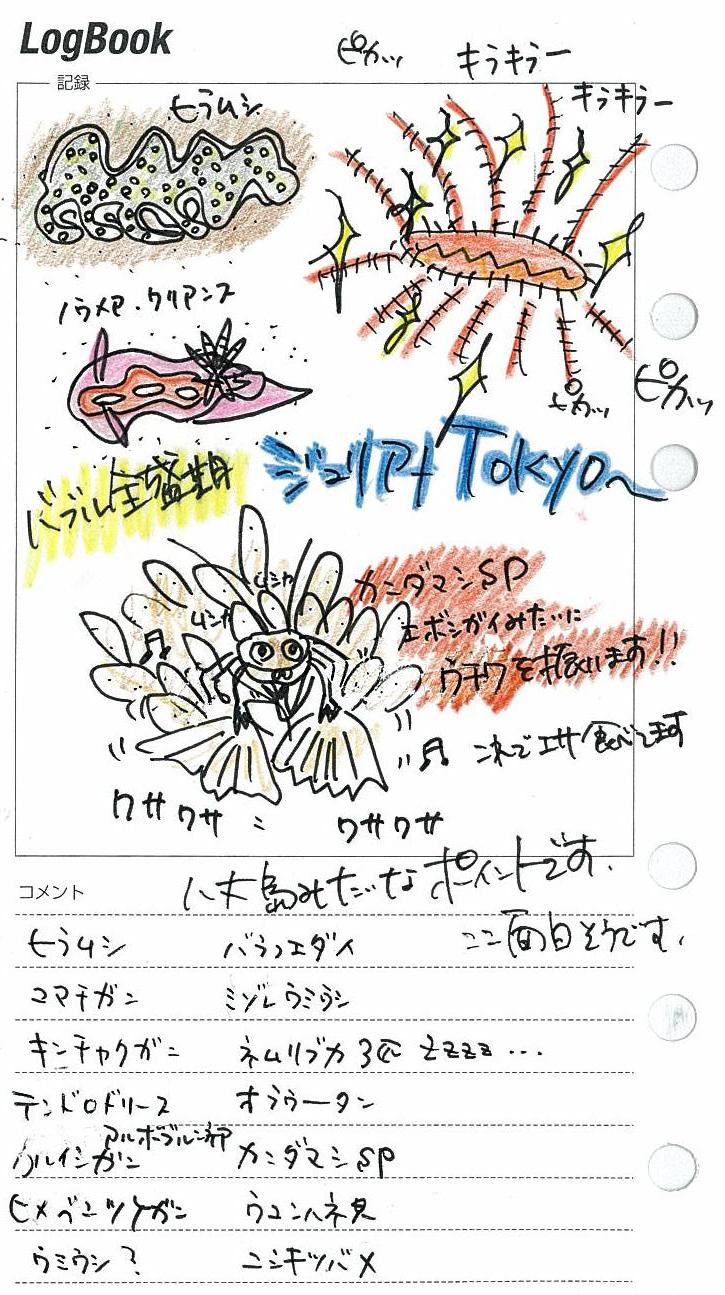 LogBook
記録
ピカッ
キラキラー
キラキラー
ヒラムシ
ノウメア・クリアンス
ピカッ
ピカッ
バブル全盛期
ジュリアナ TOKYO〜
カニダマシSP
エボシガイみたいに
ウチワを振ります!!
ムシャ
ムシャ
これでエサ食べてます
ワサワサ
ワサワサ
コメント
八丈島みたいなポイントです.
ここ面白そうです.
ヒラムシ
バラフエダイ
コマチガニ
ミゾレウミウシ
キンチャクガニ
ネムリブカ 3匹 ZZZZZ…
デンドロドリース
オラウータン
アルボブルネア
カニダマシSP
ヒメベニツケガニ
ウコンハネ貝
ウミウシ?
ニシキツバメ